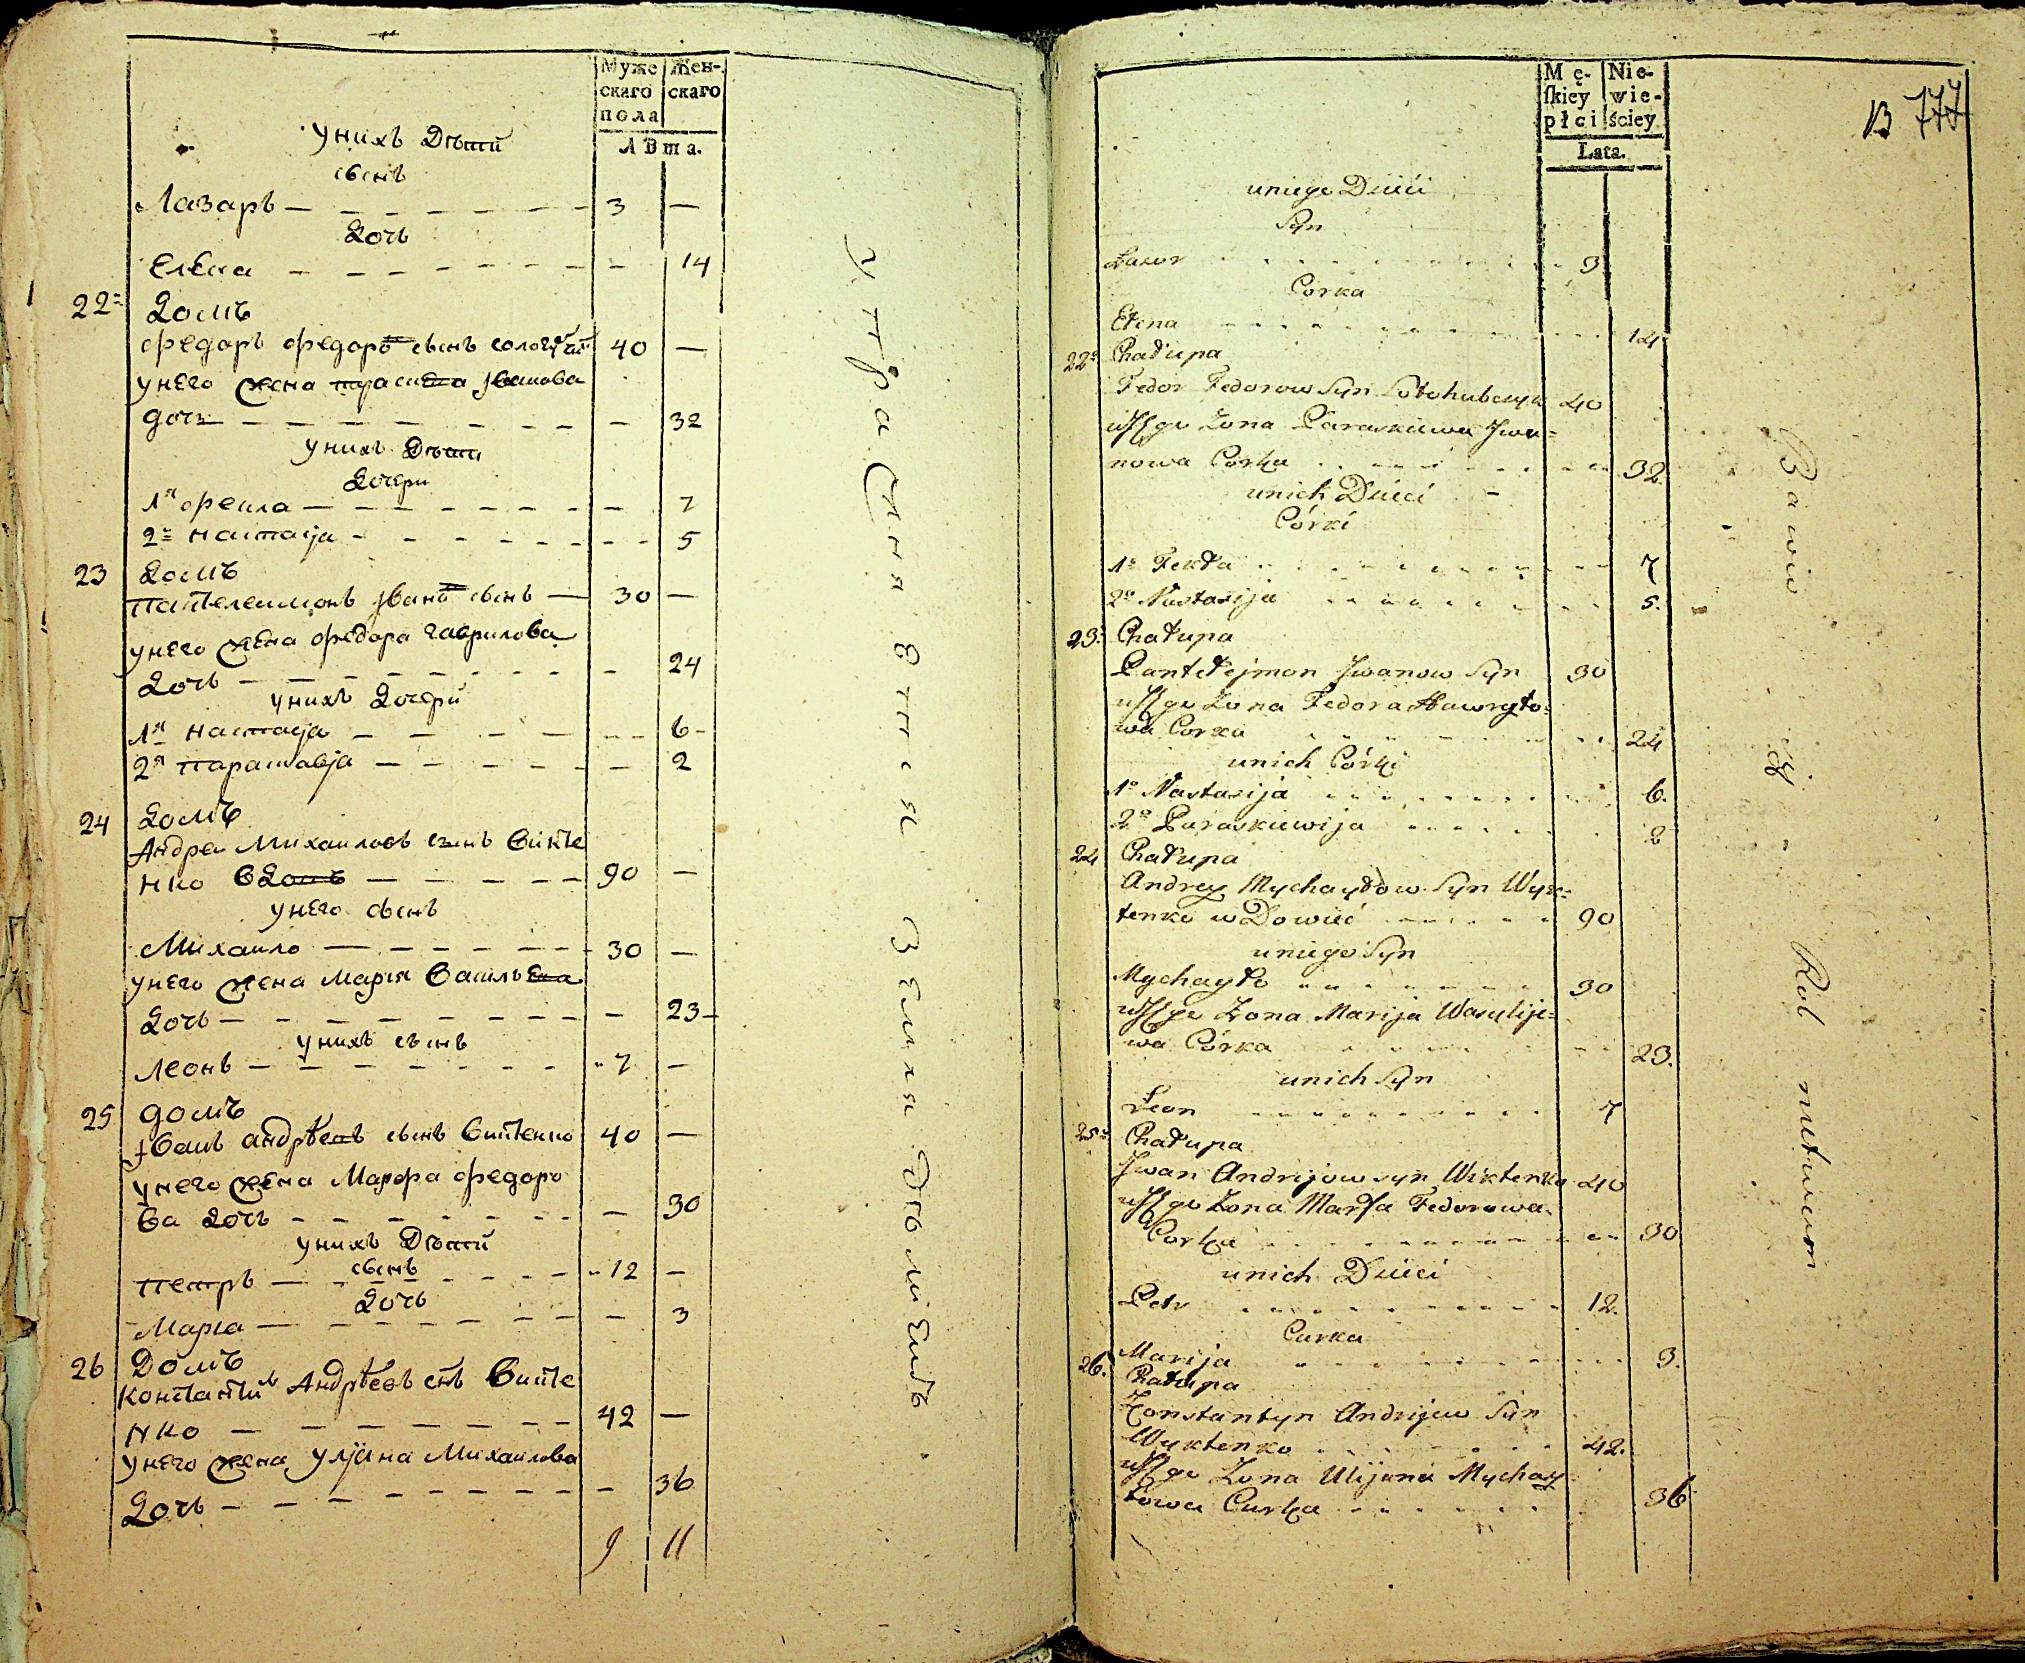 Муже
скаго
пола
Жен-
скаго
ЛѢта.
у нихъ Дѣти
сынъ
Лазаръ — 3 —
Дочь
Елена — — 14
22 Домъ
Федаръ Федаровъ сынъ 40 —
у него жена Ивано­ва
дочь — — 32
у нихъ Дѣти
Дочери
1я Фекла — — 7
2я Настасія — — 5
23 Домъ
Пантелеимонъ Івановъ сынъ — 30 —
у него жена Федора Гаврилова
Дочь — — 24
у нихъ Дочери
1я Настасја — — 6
2я Парасковја — — 2
24 Домъ
Андреи Михаиловъ сынъ Викте
нко вдовъ — 90 —
у него сынъ
Михаило — 30 —
у него жена Марія Васильева
Дочь — — 23
у нихъ сынъ
Леонъ — 7 —
25 домъ
Іванъ андрѣевъ сынъ Виктенко 40 —
у него жена Марфа Федоро
ва Дочь — — 30
у нихъ Дѣти
сынъ
Петръ — 12 —
Дочь
Марія — — 3
26 Домъ
Константинъ Андрѣевъ снъ Викте
нко — 42 —
у него жена Уліяна Михаилова
Дочь — — 36
9 11
земля
Mę-
ſkiey
płci
Nie-
wie-
ściey
Lata.
13 777
uniego Dzieci
Syn
Łazor 3
Córka
Ełena 14
22. Chałupa
Fedor Fedorow Syn Sołohubczyk 40
u Jego Żona Paraskiewa Jwa=
nowa Córka 32
unich Dzieci
Córki
1a Fekła 7
2a Nastasija 5.
23. Chałupa
Pantełejmon Jwanow Syn 30
u Jego Żona Fedora Hawryło=
wa Corka 24
unich Córki
1a Nastasija 6.
2a Paraskiewija 2
24 Chałupa
Andrey Mychayłow Syn Wyk=
tenko w Dowieć 90
uniego Syn
Mychayło 30
u Jego Żona Marija Wasylije=
wa Córka 23.
unich Syn
Leon 7
25. Chałupa
Jwan Andrijow syn Wiktenko 40
u Jego Żona Marfa Fedorowa
Corka 30
unich Dzieci
Petr 12.
Curka
Marija 3.
26. Chałupa
Konstantyn Andrijew Syn
Wyktenko 42.
u Jego Żona Ulijana Mychay
łowa Curka 36
Bawią Się Rol nictwem